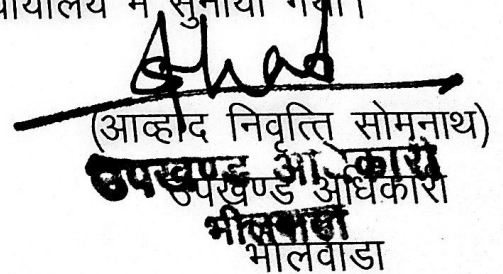 न्यायालय में सुनाया गया।
(आव्हाद निवृत्ति सोमनाथ)
उपखण्ड अधिकारी
उपखण्ड अधिकारी
भीलवाडा
भीलवाडा